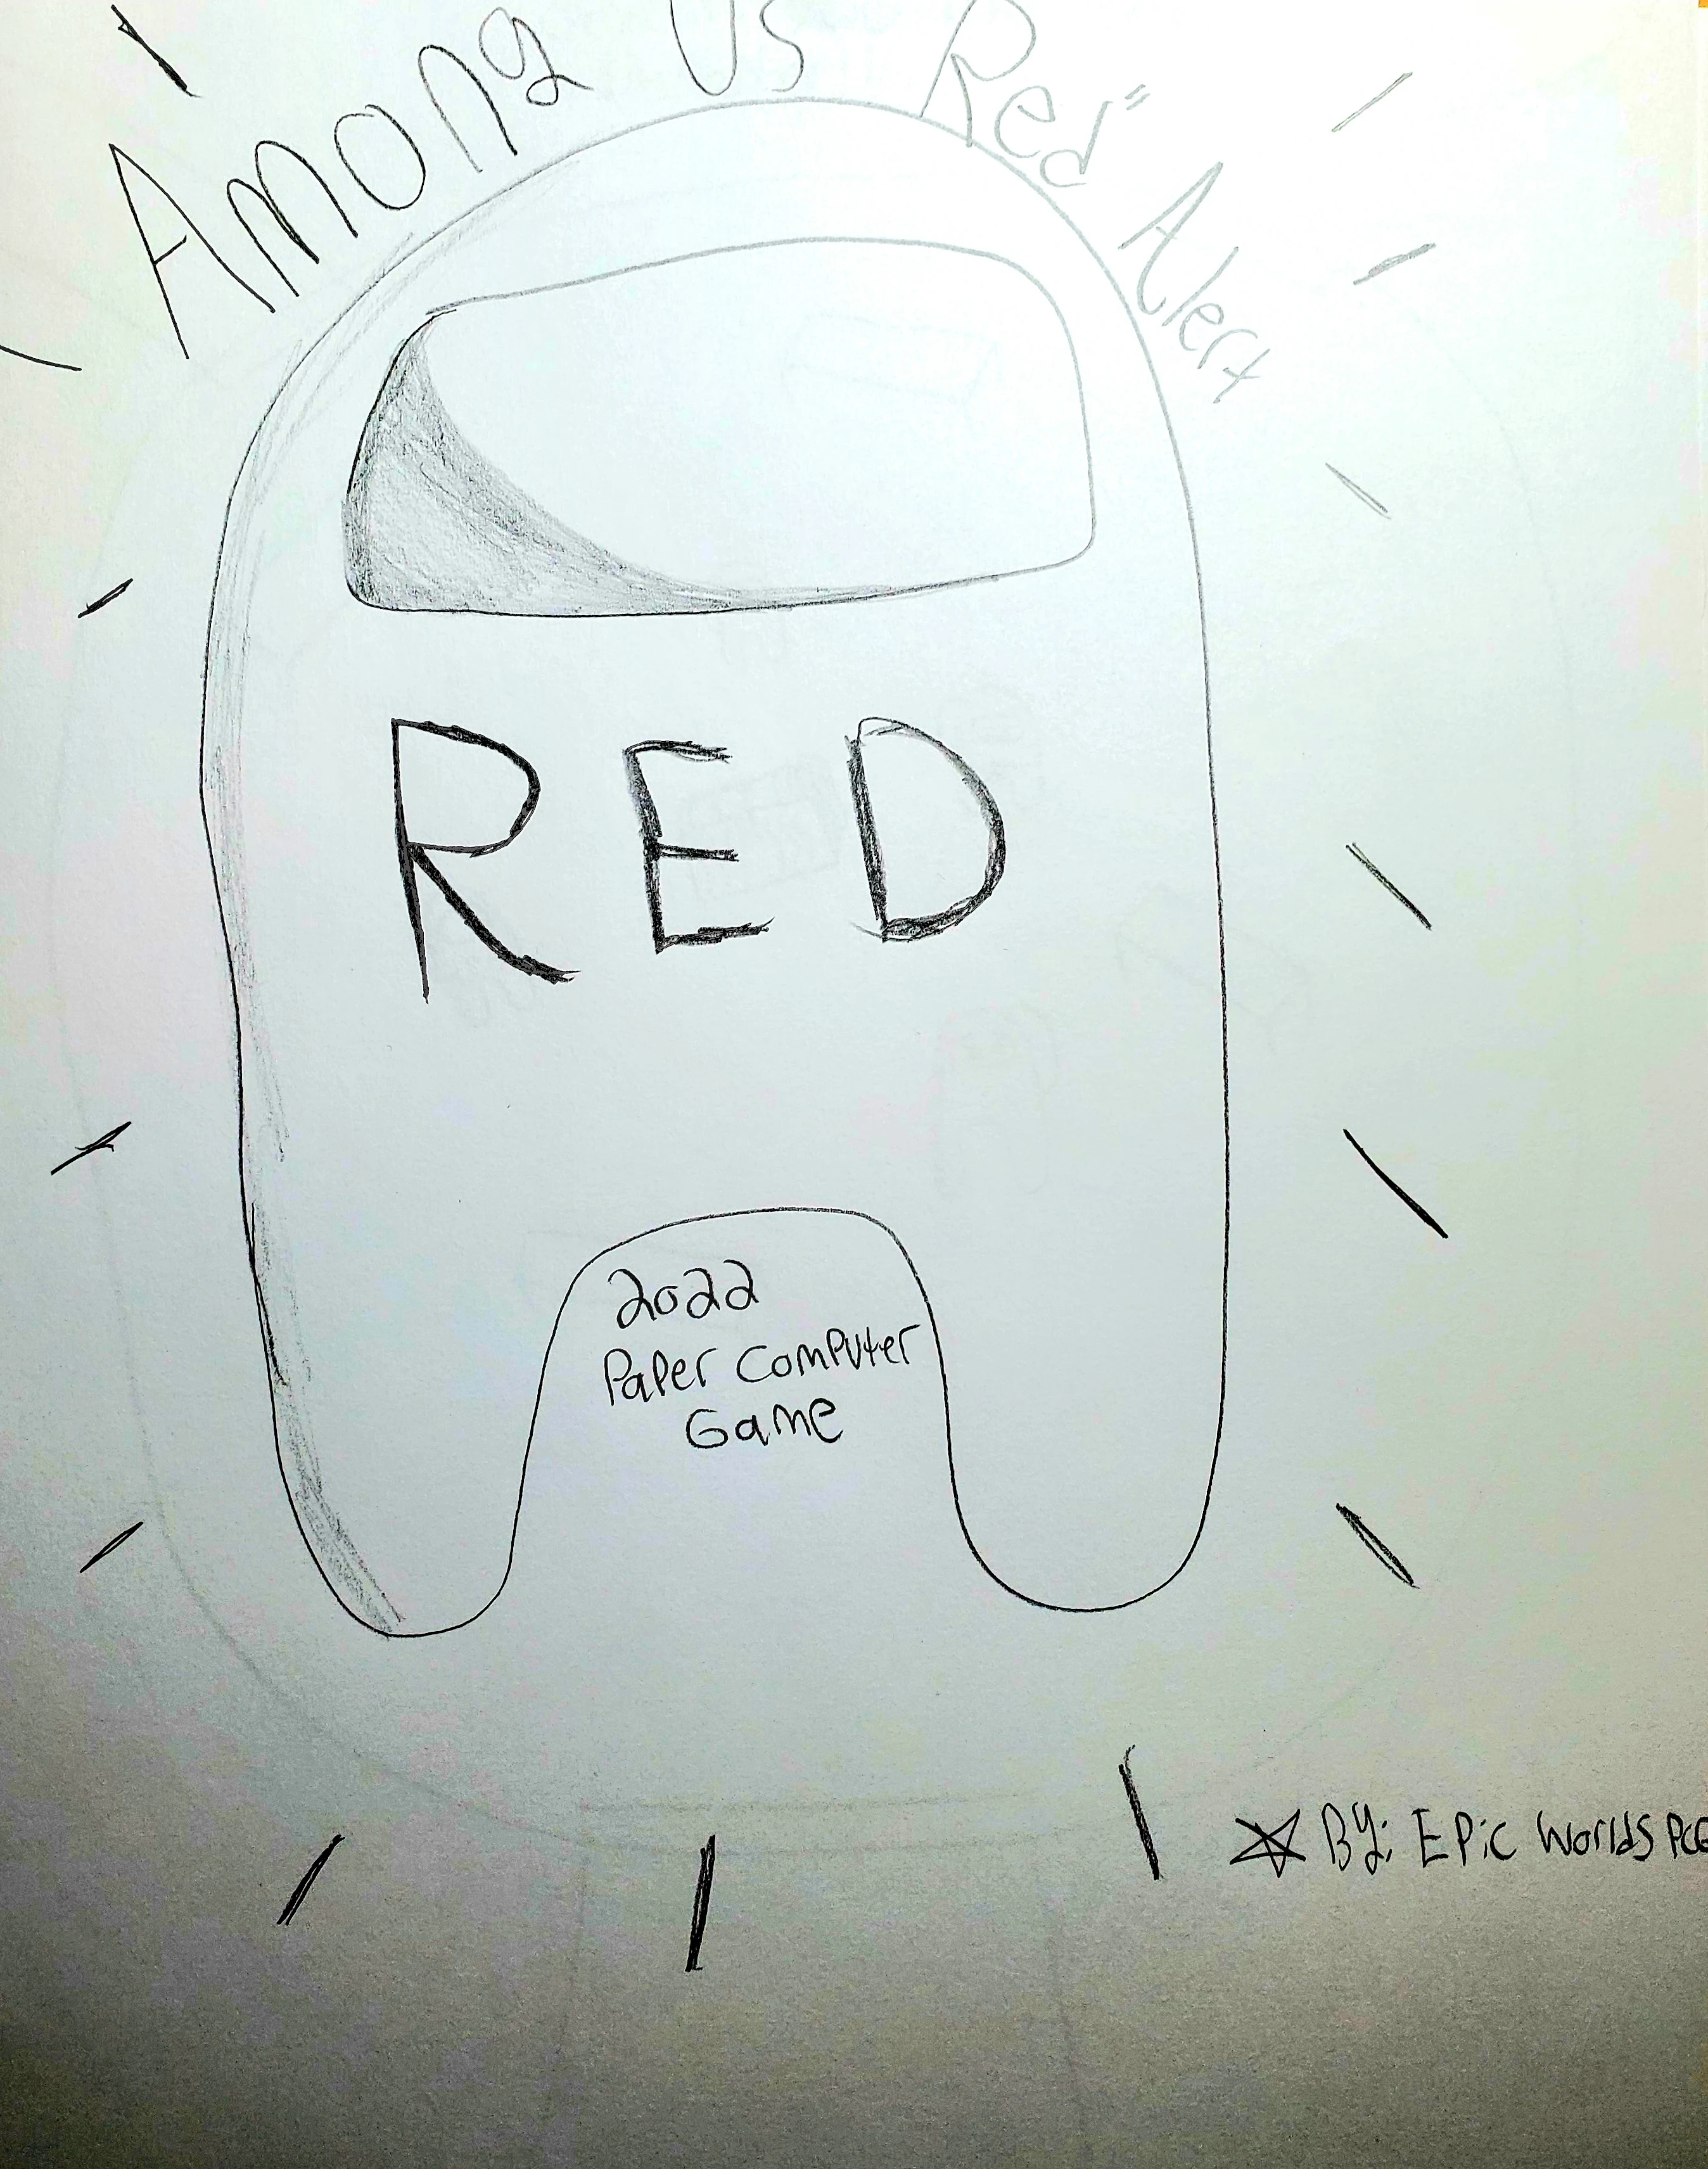 Among Us Red" Alert
RED
2022
Paper Computer
Game
By: Epic Worlds PCG